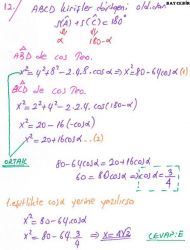 BAYÇEBİR
12.) ABCD kirişler dörtgeni olduğundan
s(Â) + s(Ĉ) = 180°
α 180-α
ABD de cos Teo.
x² = 4² + 8² - 2.4.8. cosα ⇒ x² = 80 - 64cosα (1)
BCD de cos Teo.
x² = 2² + 4² - 2.2.4. cos(180-α)
x² = 20 - 16(-cosα)
x² = 20 + 16cosα ...(2)
ORTAK
80 - 64cosα = 20 + 16cosα
60 = 80cosα ⇒ cosα = 3/4
1. eşitlikte cosα yerine yazılırsa
x² = 80 - 64.cosα
x² = 80 - 64. 3/4 ⇒ x = 4√2
CEVAP: E